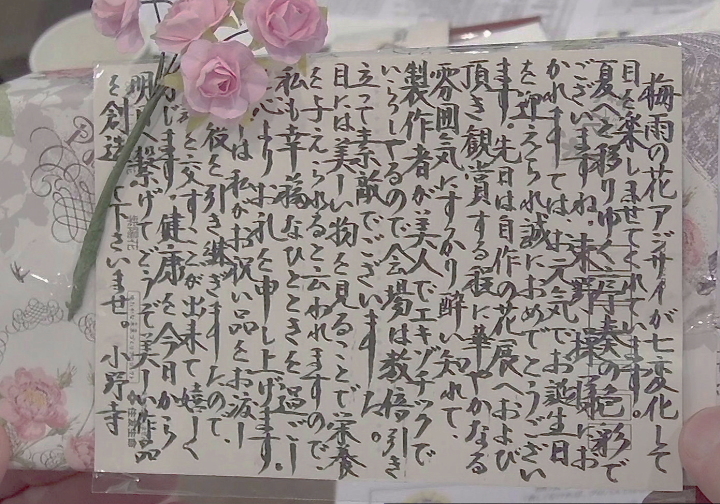 梅雨の花アジサイが七変化して
目を楽しませてくれています。
夏へと移りゆく序奏の色彩で
ございますね。東野操様にお
かれましてはお元気でお誕生日
を迎えられ誠におめでとうござい
ます。先日は自作の花展へおよび
頂き観賞する程に華やかなる
雰囲気にすっかり酔い知れて、
製作者が美人でエキゾチックで
いらっしゃるので会場は数倍引き
立って素敵でございました。
目には美しい物を見ることで栄養
を与えられると云われますので、
私も幸福なひとときを過ごし
心よりお礼を申し上げます。
は私がお祝い品をお渡し
役を引き継ぎましたので、
を交すことが出来て嬉しく
じます。健康を今日から
明日へ繋げてどうぞ美しい作品
を創造して下さいませ。 小野寺